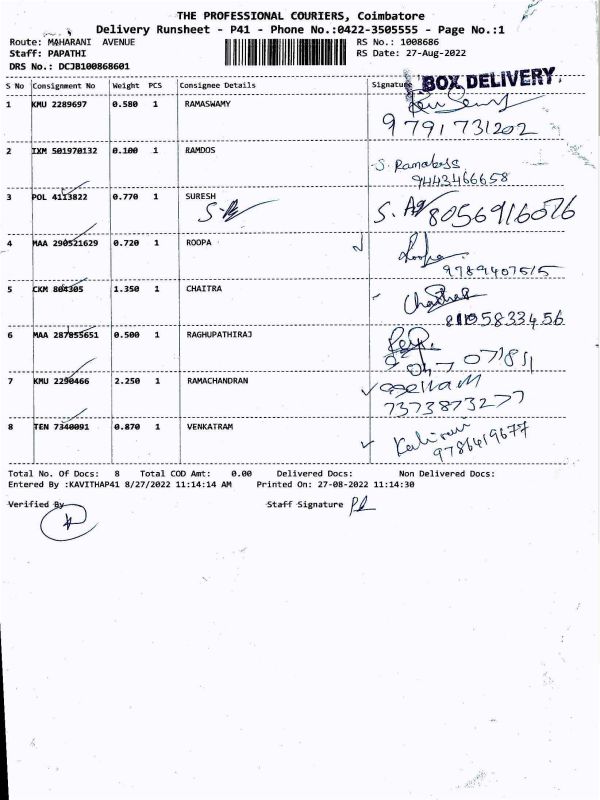 THE PROFESSIONAL COURIERS, Coimbatore
Delivery Runsheet - P41 - Phone No.:0422-3505555 - Page No.:1
Route: MAHARANI AVENUE RS No.: 1008686
Staff: PAPATHI RS Date: 27-Aug-2022
DRS No.: DCJB100868601
S No Consignment No Weight PCS Consignee Details Signature
BOX DELIVERY.
1 KMU 2289697 0.580 1 RAMASWAMY
9791731202
2 IXM 501970132 0.100 1 RAMDOS
S. Ramadoss
9443466658
3 POL 4113822 0.770 1 SURESH
8056916076
4 MAA 290521629 0.720 1 ROOPA
Roopa
9789407515
5 CKM 804305 1.350 1 CHAITRA
Chaitra
6 MAA 287855651 0.500 1 RAGHUPATHIRAJ
7 KMU 2290466 2.250 1 RAMACHANDRAN
7373873277
8 TEN 7340091 0.870 1 VENKATRAM
9786419677
Total No. Of Docs: 8 Total COD Amt: 0.00 Delivered Docs: Non Delivered Docs:
Entered By :KAVITHAP41 8/27/2022 11:14:14 AM Printed On: 27-08-2022 11:14:30
Verified By Staff Signature